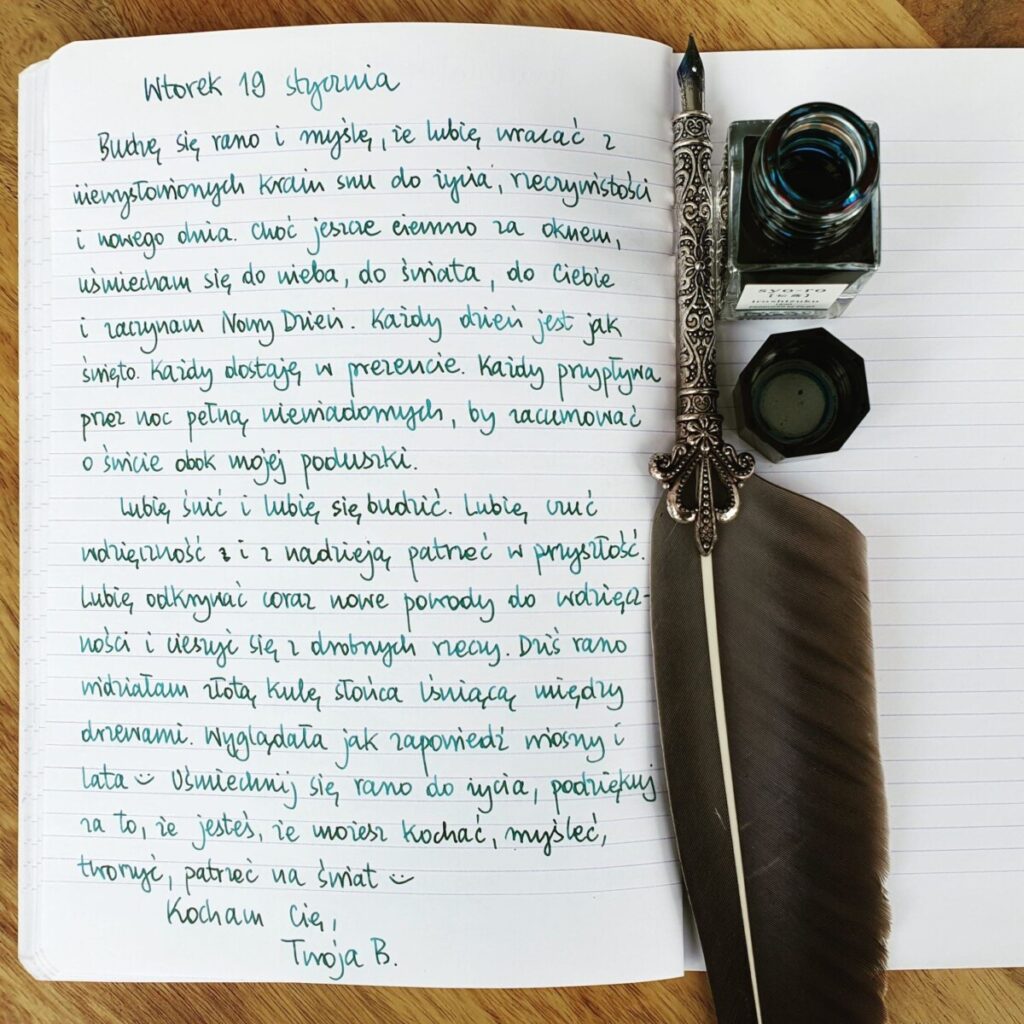 Wtorek 19 stycznia
Budzę się rano i myślę, że lubię wracać z
niewysłowionych krain snu do życia, rzeczywistości
i nowego dnia. Choć jeszcze ciemno za oknem,
uśmiecham się do nieba, do świata, do Ciebie
i zaczynam Nowy Dzień. Każdy dzień jest jak
święto. Każdy dostaję w prezencie. Każdy przypływa
przez noc pełną niewiadomych, by zacumować
o świcie obok mojej poduszki.
Lubię śnić i lubię się budzić. Lubię czuć
wdzięczność i z nadzieją patrzeć w przyszłość.
Lubię odkrywać coraz nowe powody do wdzięcz-
ności i cieszyć się z drobnych rzeczy. Dziś rano
widziałam złotą kulę słońca lśniącą między
drzewami. Wyglądała jak zapowiedź wiosny i
lata Uśmiechnij się rano do życia, podziękuj
za to, że jesteś, że możesz kochać, myśleć,
tworzyć, patrzeć na świat
Kocham Cię,
Twoja B.
syo-ro
iroshizuku